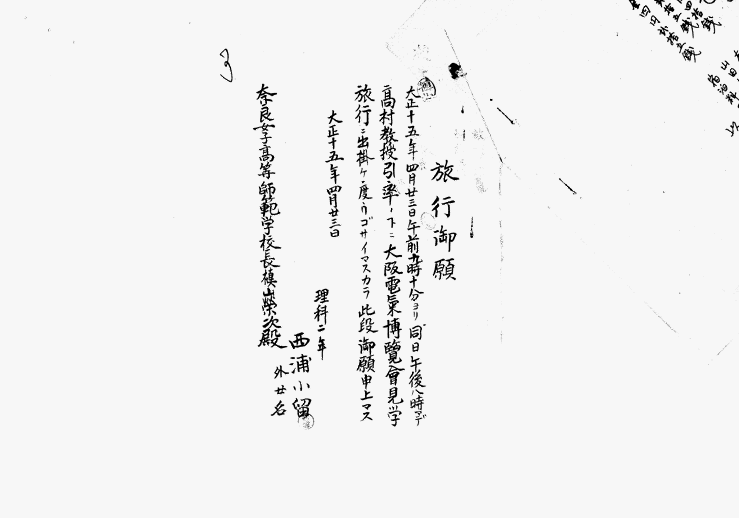 旅行御願
大正十五年四月廿三日午前九時十分ヨリ同日午後八時マデ
高村教授引率ノ下ニ大阪電気博覧會見学
旅行ニ出掛ケ度ウゴザイマスカラ此段御願申上マス
大正十五年四月廿三日
理科二年
西浦小留
外廿名
奈良女子高等師範学校長槇山榮次殿